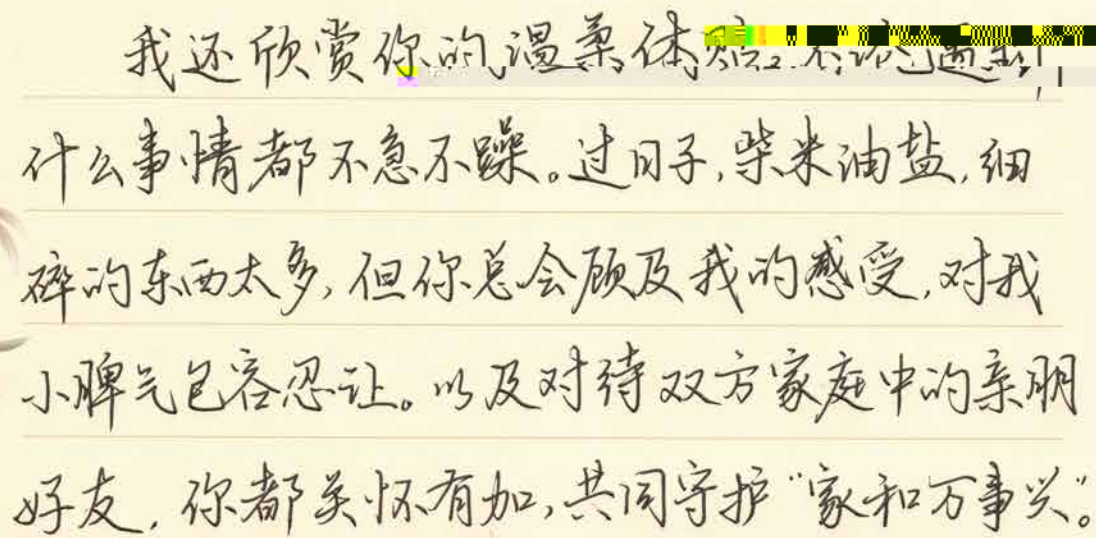 我还欣赏你的温柔体贴。不论遇到
什么事情都不急不躁。过日子,柴米油盐,细
碎的东西太多,但你总会顾及我的感受,对我
小脾气包容忍让。以及对待双方家庭中的亲朋
好友,你都关怀有加,共同守护“家和万事兴”。